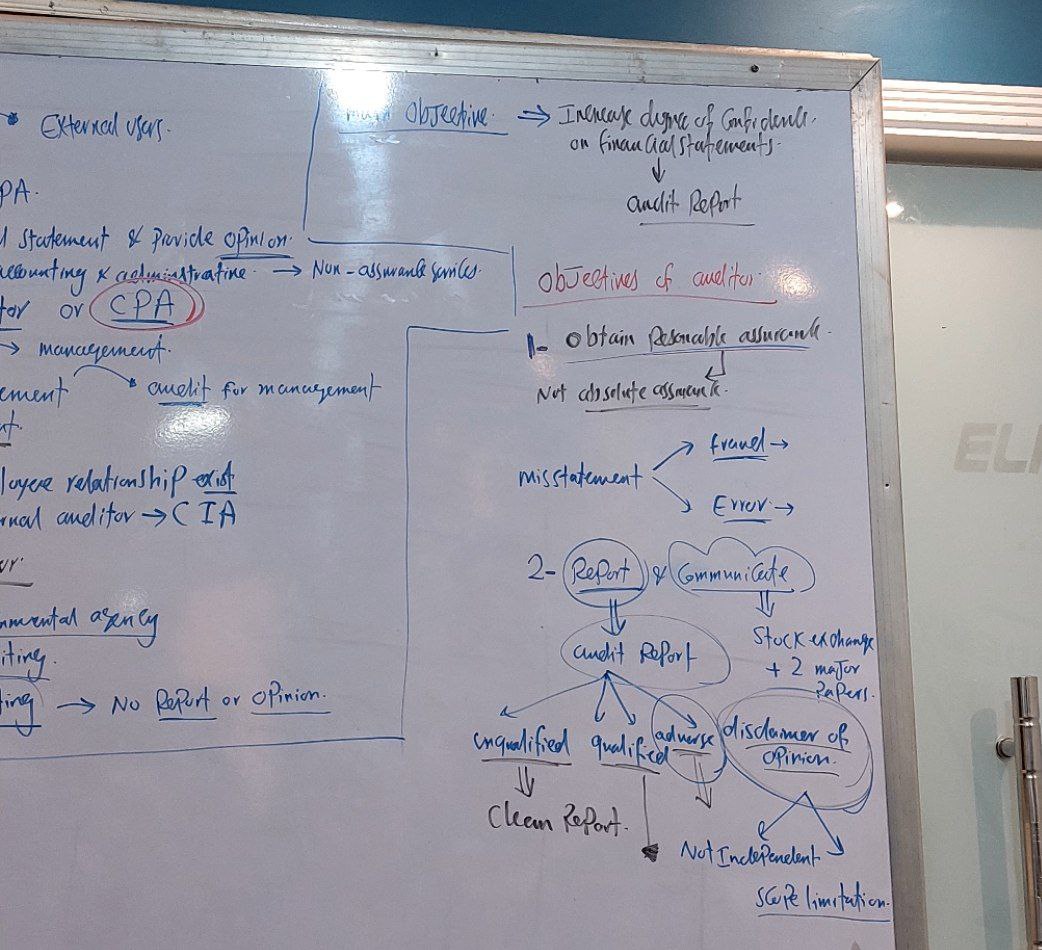 External users.
PA.
Statement & Provide opinion.
accounting & administrative. → Non-assurance services.
tor or CPA
→ management.
ement → audit for management
nt.
loyee relationship exist
rnal auditor → CIA
nmental agency
iting.
ting → No Report or opinion.
Objective. ⇒ Increase degree of Confidence
on financial statements.
↓
audit Report
Objectives of auditor.
1- Obtain Resonable assurance.
Not absolute assurance.
misstatement
fraud →
Error →
2- Report & Communicate
audit Report
Stock exchange
+ 2 major
Papers.
unqualified qualified adverse disclaimer of
opinion.
Clean Report.
Not Independent
scope limitation.
EL